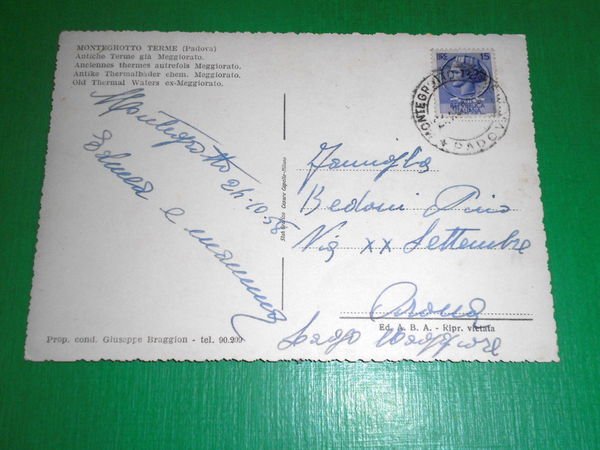 MONTEGROTTO TERME (Padova)
Antiche Terme già Meggiorato.
Anciennes thermes autrefois Meggiorato.
Antike Thermalbäder ehem. Meggiorato.
Old Thermal Waters ex-Meggiorato.
LIRE 15
MONTEGROTTO
PADOVA
Montegrotto 24.10.58
e mamma
Stab. Grafico Cesare Capello-Milano
Famiglia
Bedoni Pino
Via XX Settembre
Arona
Lago Maggiore
Ed. A. B. A. - Ripr. vietata
Prop. cond. Giuseppe Braggion - tel. 90.209